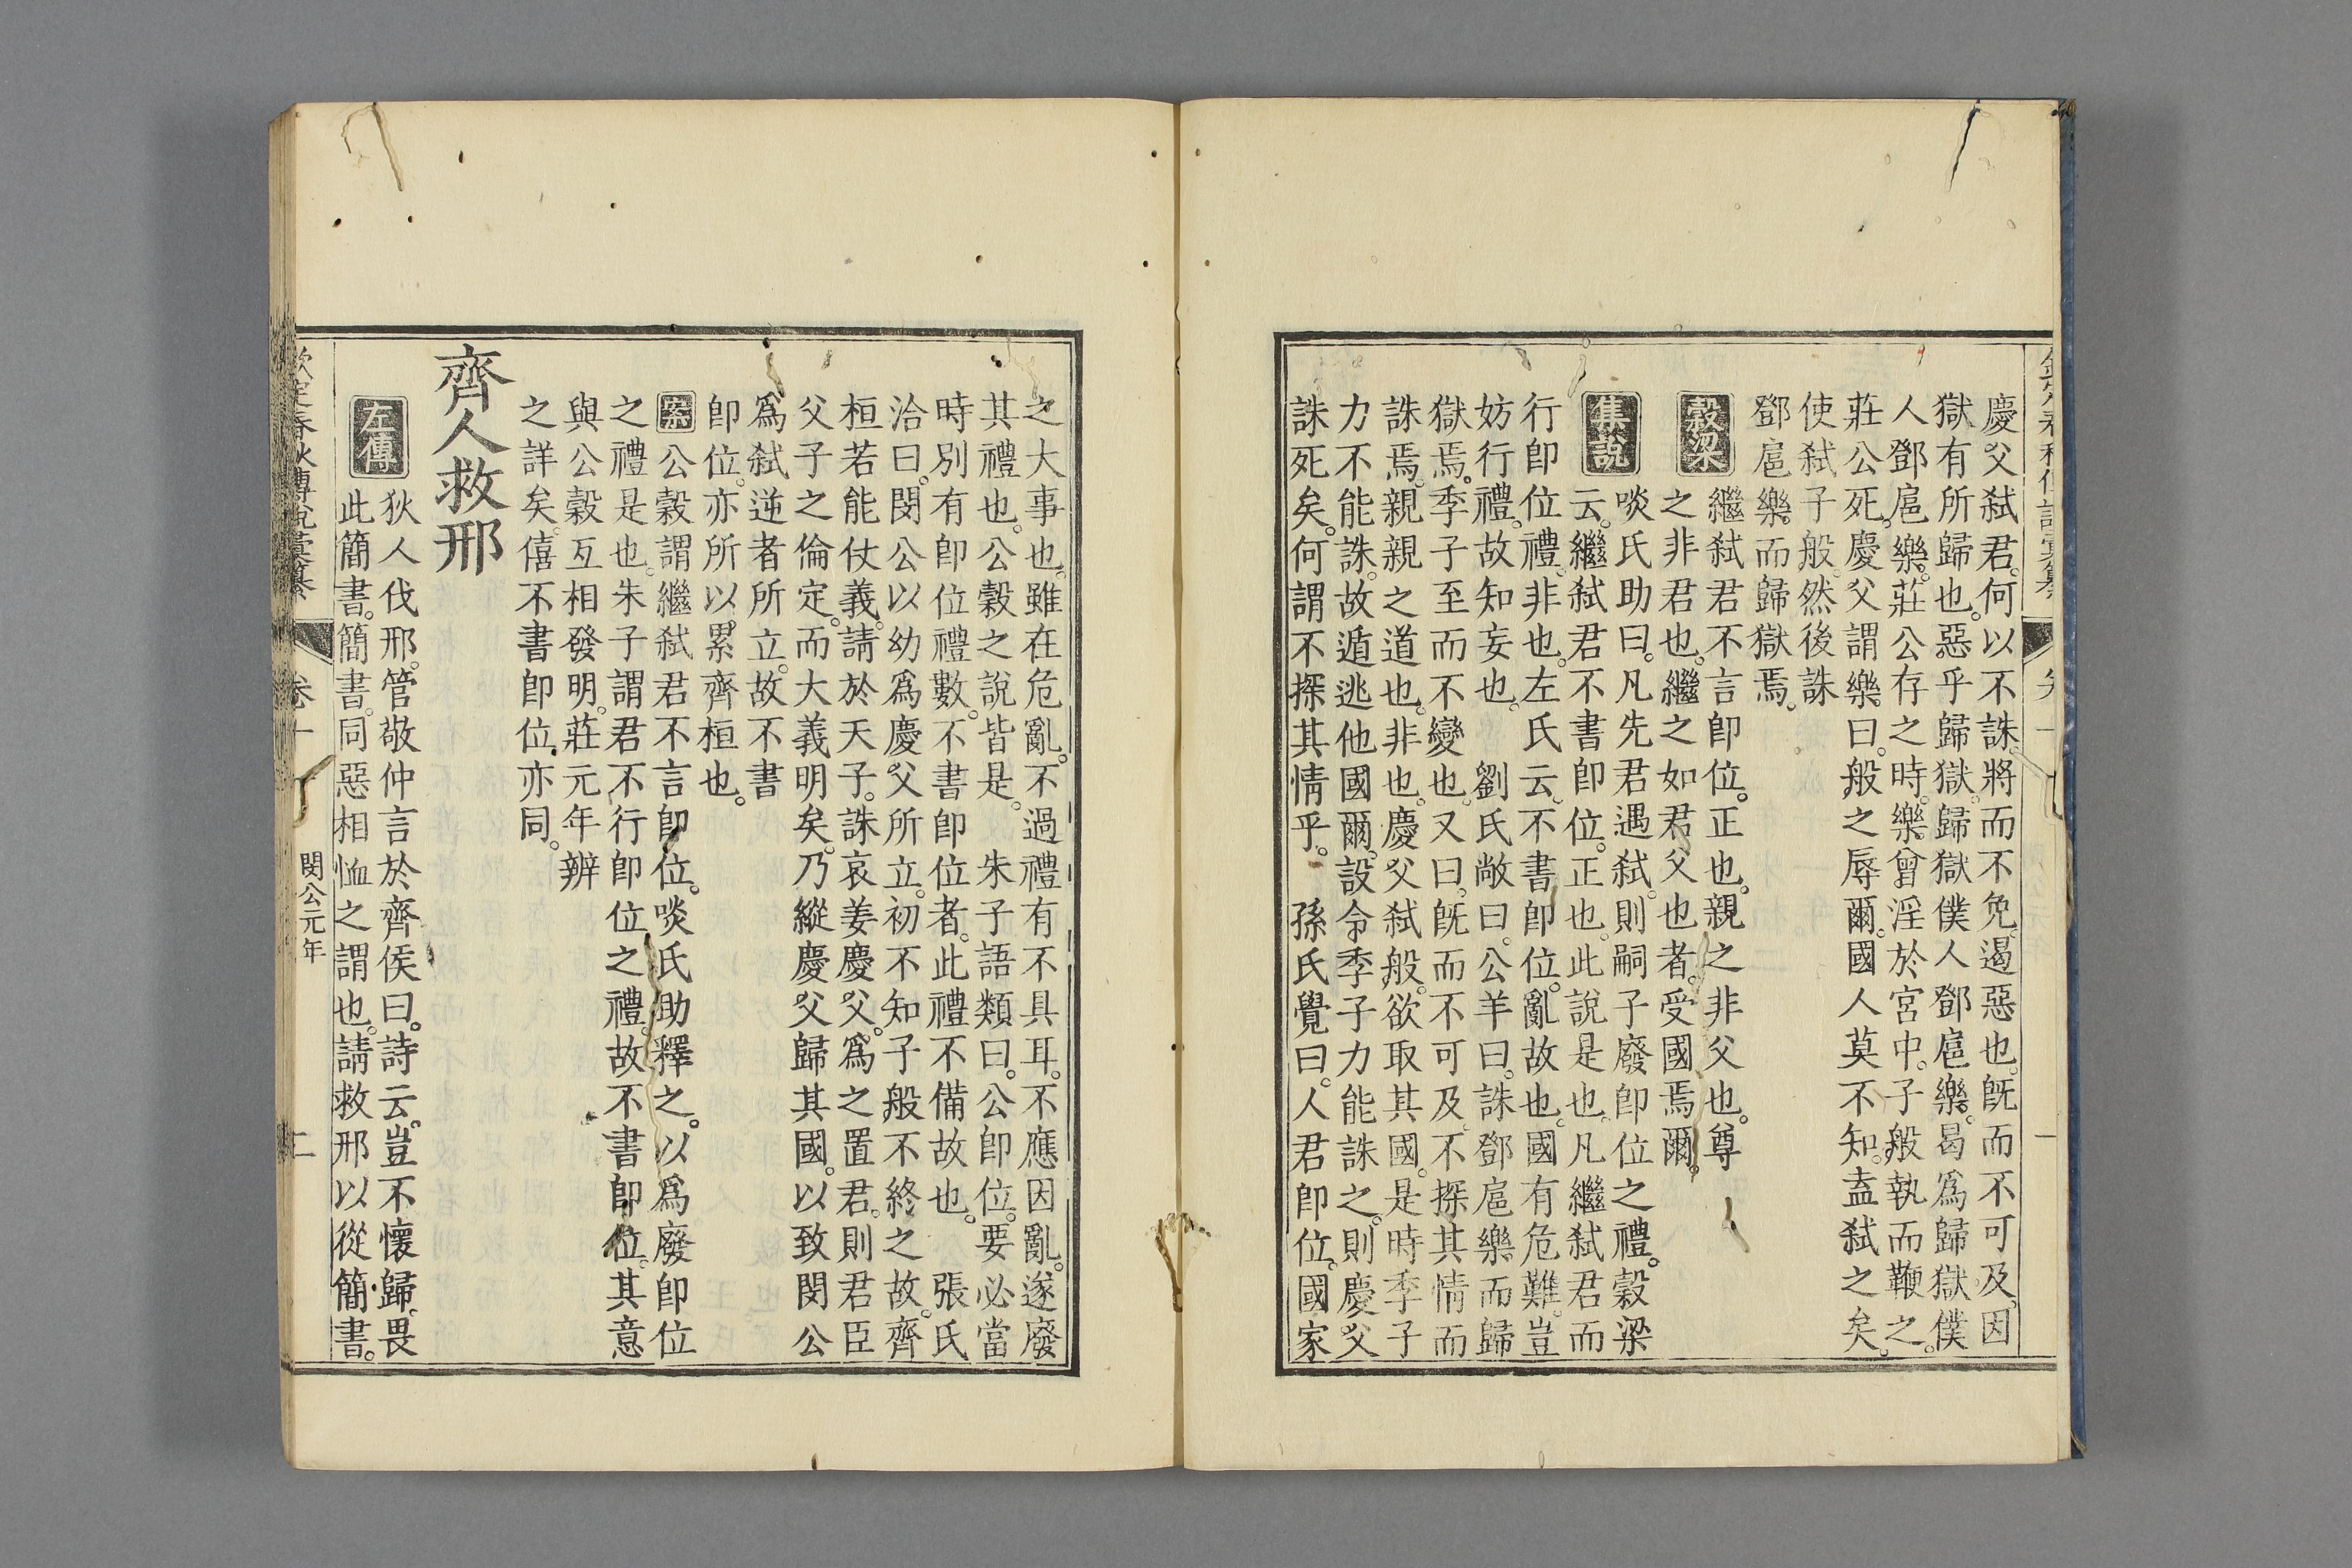 慶父弑君。何以不誅。將而不免。遏惡也。旣而不可及。因
獄有所歸也。惡乎歸獄。歸獄僕人鄧扈樂。曷爲歸獄僕
人鄧扈樂。莊公存之時。樂曾淫於宮中。子般執而鞭之。
莊公死。慶父謂樂曰。般之辱爾。國人莫不知。盍弑之矣。
使弑子般。然後誅
鄧扈樂。而歸獄焉。
穀梁
繼弑君不言卽位。正也。親之非父也。尊
之非君也。繼之如君父也者。受國焉爾。
集說
啖氏助曰。凡先君遇弑。則嗣子廢卽位之禮。穀梁
云。繼弑君不書卽位。正也。此說是也。凡繼弑君而
行卽位禮。非也。左氏云。不書卽位。亂故也。國有危難。豈
妨行禮。故知妄也。 劉氏敞曰。公羊曰。誅鄧扈樂。而歸
獄焉。季子至而不變也。又曰。旣而不可及。不探其情而
誅焉。親親之道也。非也。慶父弑般。欲取其國。是時季子
力不能誅。故遁逃他國爾。設令季子力能誅之。則慶父
誅死矣。何謂不探其情乎。 孫氏覺曰。人君卽位。國家
之大事也。雖在危亂。不過禮有不具耳。不應因亂。遂廢
其禮也。公穀之說皆是。 朱子語類曰。公卽位。要必當
時別有卽位禮數。不書卽位者。此禮不備故也。 張氏
洽曰。閔公以幼爲慶父所立。初不知子般不終之故。齊
桓若能仗義。請於天子。誅哀姜慶父。爲之置君。則君臣
父子之倫定。而大義明矣。乃縱慶父歸其國。以致閔公
爲弑逆者所立。故不書
卽位。亦所以累齊桓也。
案
公穀謂繼弑君不言卽位。啖氏助釋之。以爲廢卽位
之禮是也。朱子謂君不行卽位之禮。故不書卽位。其意
與公穀互相發明。莊元年辨
之詳矣。僖不書卽位。亦同。
齊人救邢
左傳
狄人伐邢。管敬仲言於齊侯曰。詩云。豈不懷歸。畏
此簡書。簡書。同惡相恤之謂也。請救邢以從簡書。
欽定春秋傳說彙纂 卷十 閔公元年 二